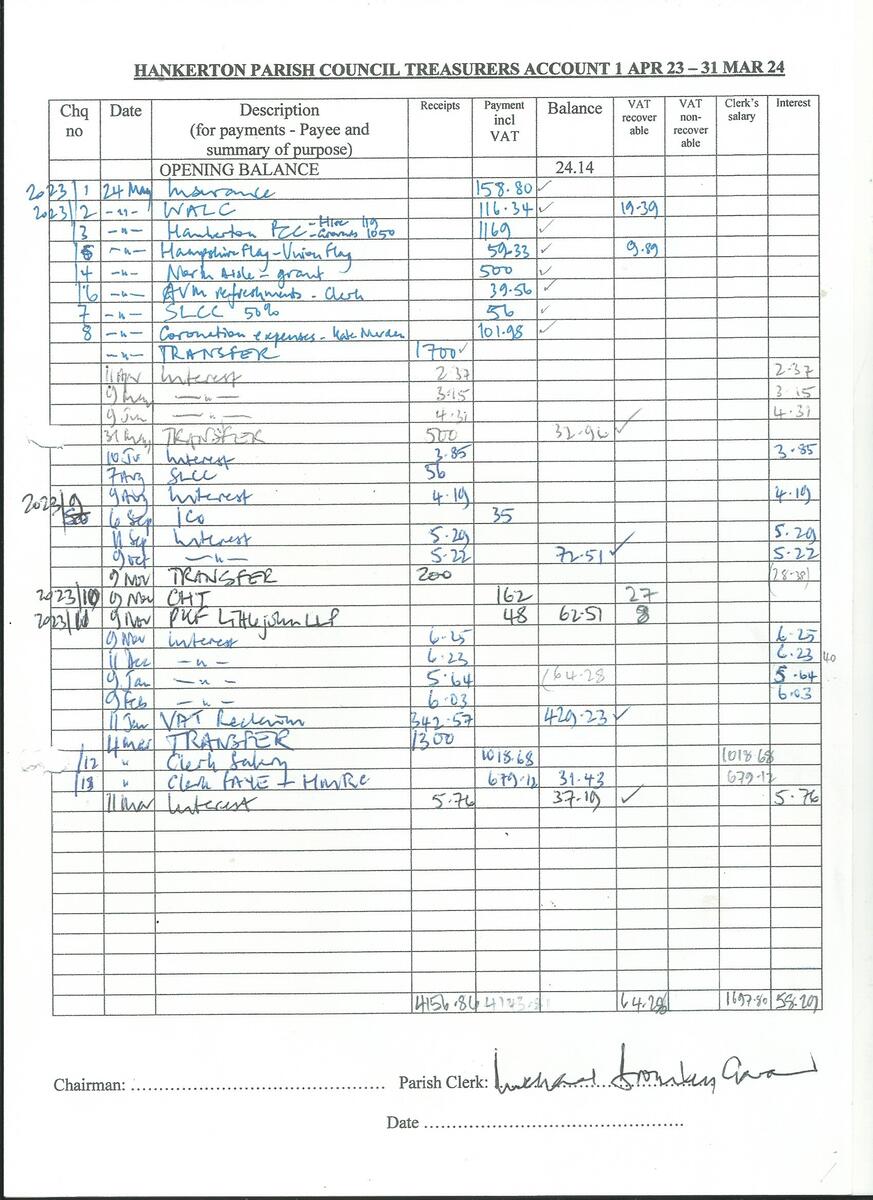 HANKERTON PARISH COUNCIL TREASURERS ACCOUNT 1 APR 23 – 31 MAR 24
Chq no Date Description (for payments - Payee and summary of purpose) Receipts Payment incl VAT Balance VAT recover able VAT non-recover able Clerk's salary Interest
OPENING BALANCE 24.14
2023/1 24 May Insurance 158.80 ✓
2023/2 -"- WALC 116.34 ✓ 19.39
3 -"- Hankerton PCC - Hire 119 - Grounds 1050 1169 ✓
5 -"- Hampshire Flag - Union Flag 59.33 ✓ 9.89
4 -"- North Aisle - grant 500 ✓
6 -"- AVM refreshments - Clerk 39.56 ✓
7 -"- SLCC 50% 56 ✓
8 -"- Coronation expenses - Kate 101.98 ✓
-"- TRANSFER 1700 ✓
11 Apr Interest 2.37 2.37
9 May -"- 3.15 3.15
9 Jun -"- 4.31 4.31
31 May TRANSFER 500 32.96 ✓
10 Jul Interest 3.85 3.85
7 Aug SLCC 56
2023/9 9 Aug Interest 4.19 4.19
6 Sep ICO 35
11 Sep Interest 5.29 5.29
9 Oct -"- 5.22 72.51 ✓ 5.22
9 Nov TRANSFER 200 (28.38)
2023/10 9 Nov CHT 162 27
2023/11 9 Nov PKF Littlejohn LLP 48 62.51 8
9 Nov interest 6.25 6.25
11 Dec -"- 6.23 6.23 40
9 Jan -"- 5.64 (64.28 5.64
9 Feb -"- 6.03 6.03
11 Jan VAT Reclaim 342.57 429.23 ✓
4 Mar TRANSFER 1300
/12 " Clerk Salary 1018.68 1018.68
/13 " Clerk PAYE - HMRC 679.12 31.43 679.12
11 Mar Interest 5.76 37.19 ✓ 5.76
4156.86 64.28 1697.80 58.29
Chairman: ……………………………………… Parish Clerk:
Date ………………………………………